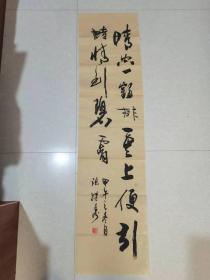 晴空一鹤排云上便引
诗情到碧霄
甲午之冬月